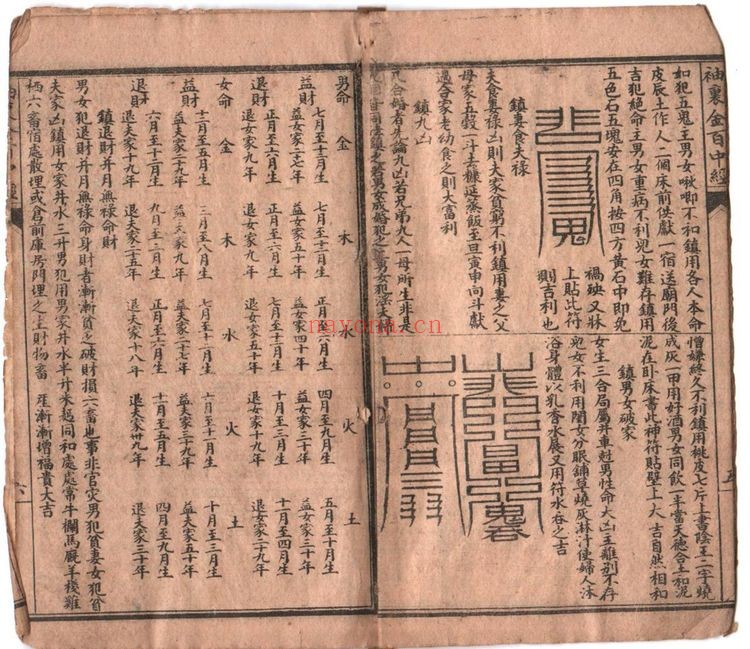 袖裏金百中經
五
如犯五鬼主男女啾唧不和鎮用各人本命
戌辰土作人二個床前供獻一宿送廟門後
吉犯絶命主男女重病不利兇女難存鎮用
五色石五塊安在四角按四方黃石中即免
禍殃又牀
上貼比符
則吉利也
鎮妻食夫祿
夫食妻祿凶則夫家貧窮不利鎮用妻之父
母家五穀一斗土糠延蒸飯至旦寅申向斗獻
過合家老幼食之則大富利
鎮九凶
凡合婚者先論九凶若兄弟九人一母所生非是
憎嫌終久不利鎮用桃皮七斤上書陰王二字燒
成灰一甲用好酒男女同飲一半當天德合土和泥
泥在卧床書此神符貼壁上大吉自然相和
鎮男女破家
女生三合局屬井車尅男性命大凶主離別不存
兇女不利用閨女分眼鋪草燒灰淋汁使婦人沐
浴身體以乳香火展又用符水吞之吉
男命 金 木 水 火 土
益財 七月至十二月生 七月至十二月生 正月至六月生 四月至九月生 五月至十月生
益女家二十七年 益女家五十年 益女家四十年 益妻家三十年 益女家三十年
退財 正月至六月生 正月至六月生 七月至十二月生 十月至三月生 十一月至四月生
退女家九年 退女家九年 退女家五十年 退女家十九年 退女家二十九年
女命 金 木 水 火 土
益財 十二月至五月生 三月至八月生 七月至十二月生 六月至十一月生 十月至三月生
益夫家三十年 益夫家九年 益夫家二十七年 益夫家三十年 益夫家五十年
退財 六月至十一月生 九月至二月生 正月至六月生 十二月至五月生 四月至九月生
退夫家十九年 退夫家三十五年 退夫家十八年 退夫家卅九年 退夫家三十年
鎮退財并月無祿
男女犯退財并月無祿命身財者漸漸貧乏破財損六畜也事非官灾男犯貧妻女犯貧
夫家凶鎮用女家井水三升男犯用男家井水半升米麺同和處處常牛欄馬厩羊棧雞
栖六畜宿處散埋或倉前庫房門埋之主財物畜産漸漸增福貴大吉
六
nayona.cn